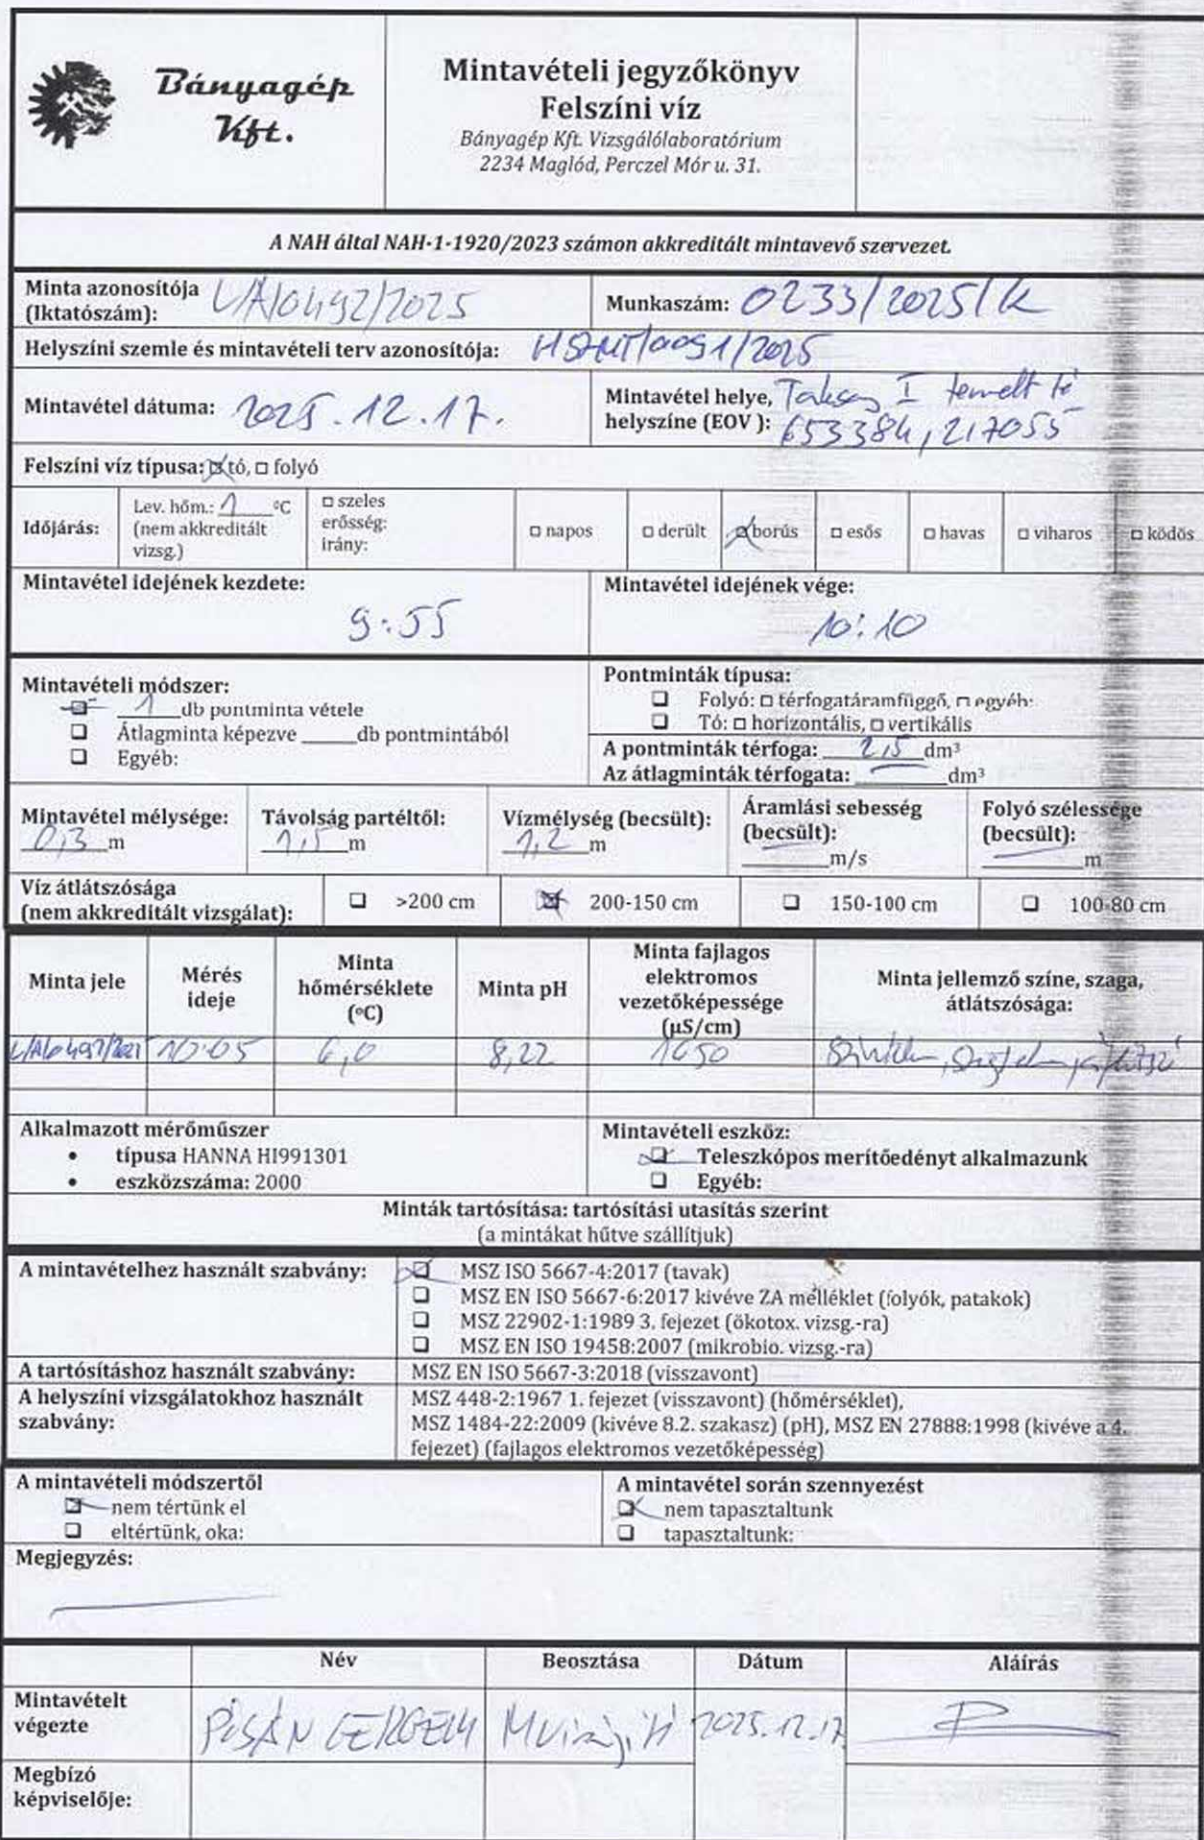 Bányagép
Kft.
Mintavételi jegyzőkönyv
Felszíni víz
Bányagép Kft. Vizsgálólaboratórium
2234 Maglód, Perczel Mór u. 31.
A NAH által NAH-1-1920/2023 számon akkreditált mintavevő szervezet.
Minta azonosítója
(Iktatószám): L/A/0492/2025
Munkaszám: 0233/2025/K
Helyszíni szemle és mintavételi terv azonosítója: HSZMT/0091/2025
Mintavétel dátuma: 2025.12.17.
Mintavétel helye, I termelt tó
helyszíne (EOV ): 653384, 217055
Felszíni víz típusa: ☒ tó, □ folyó
Időjárás:
Lev. hőm.: 1 °C
(nem akkreditált
vizsg.)
□ szeles
erősség:
irány:
□ napos
□ derült
☒ borús
□ esős
□ havas
□ viharos
□ ködös
Mintavétel idejének kezdete:
9:55
Mintavétel idejének vége:
10:10
Mintavételi módszer:
☒ 1 db pontminta vétele
❑ Átlagminta képezve _____db pontmintából
❑ Egyéb:
Pontminták típusa:
❑ Folyó: □ térfogatáramfüggő, □ egyéb:
❑ Tó: □ horizontális, □ vertikális
A pontminták térfoga: 2,5 dm³
Az átlagminták térfogata: — dm³
Mintavétel mélysége:
0,3 m
Távolság partéltől:
1,5 m
Vízmélység (becsült):
1,2 m
Áramlási sebesség
(becsült):
______m/s
Folyó szélessége
(becsült):
______m
Víz átlátszósága
(nem akkreditált vizsgálat):
❑ >200 cm
☒ 200-150 cm
❑ 150-100 cm
❑ 100-80 cm
Minta jele
Mérés
ideje
Minta
hőmérséklete
(°C)
Minta pH
Minta fajlagos
elektromos
vezetőképessége
(µS/cm)
Minta jellemző színe, szaga,
átlátszósága:
L/A/0492/2025 10:05 6,0 8,22 1650 színtelen, szagtalan, átlátszó
Alkalmazott mérőműszer
• típusa HANNA HI991301
• eszközszáma: 2000
Mintavételi eszköz:
☒ Teleszkópos merítőedényt alkalmazunk
❑ Egyéb:
Minták tartósítása: tartósítási utasítás szerint
(a mintákat hűtve szállítjuk)
A mintavételhez használt szabvány:
☒ MSZ ISO 5667-4:2017 (tavak)
❑ MSZ EN ISO 5667-6:2017 kivéve ZA melléklet (folyók, patakok)
❑ MSZ 22902-1:1989 3. fejezet (ökotox. vizsg.-ra)
❑ MSZ EN ISO 19458:2007 (mikrobio. vizsg.-ra)
A tartósításhoz használt szabvány: MSZ EN ISO 5667-3:2018 (visszavont)
A helyszíni vizsgálatokhoz használt
szabvány:
MSZ 448-2:1967 1. fejezet (visszavont) (hőmérséklet),
MSZ 1484-22:2009 (kivéve 8.2. szakasz) (pH), MSZ EN 27888:1998 (kivéve a 4.
fejezet) (fajlagos elektromos vezetőképesség)
A mintavételi módszertől
☒ nem tértünk el
❑ eltértünk, oka:
A mintavétel során szennyezést
☒ nem tapasztaltunk
❑ tapasztaltunk:
Megjegyzés:
Név
Beosztása
Dátum
Aláírás
Mintavételt
végezte
PISÁN GERGELY
2025.12.17.
Megbízó
képviselője: